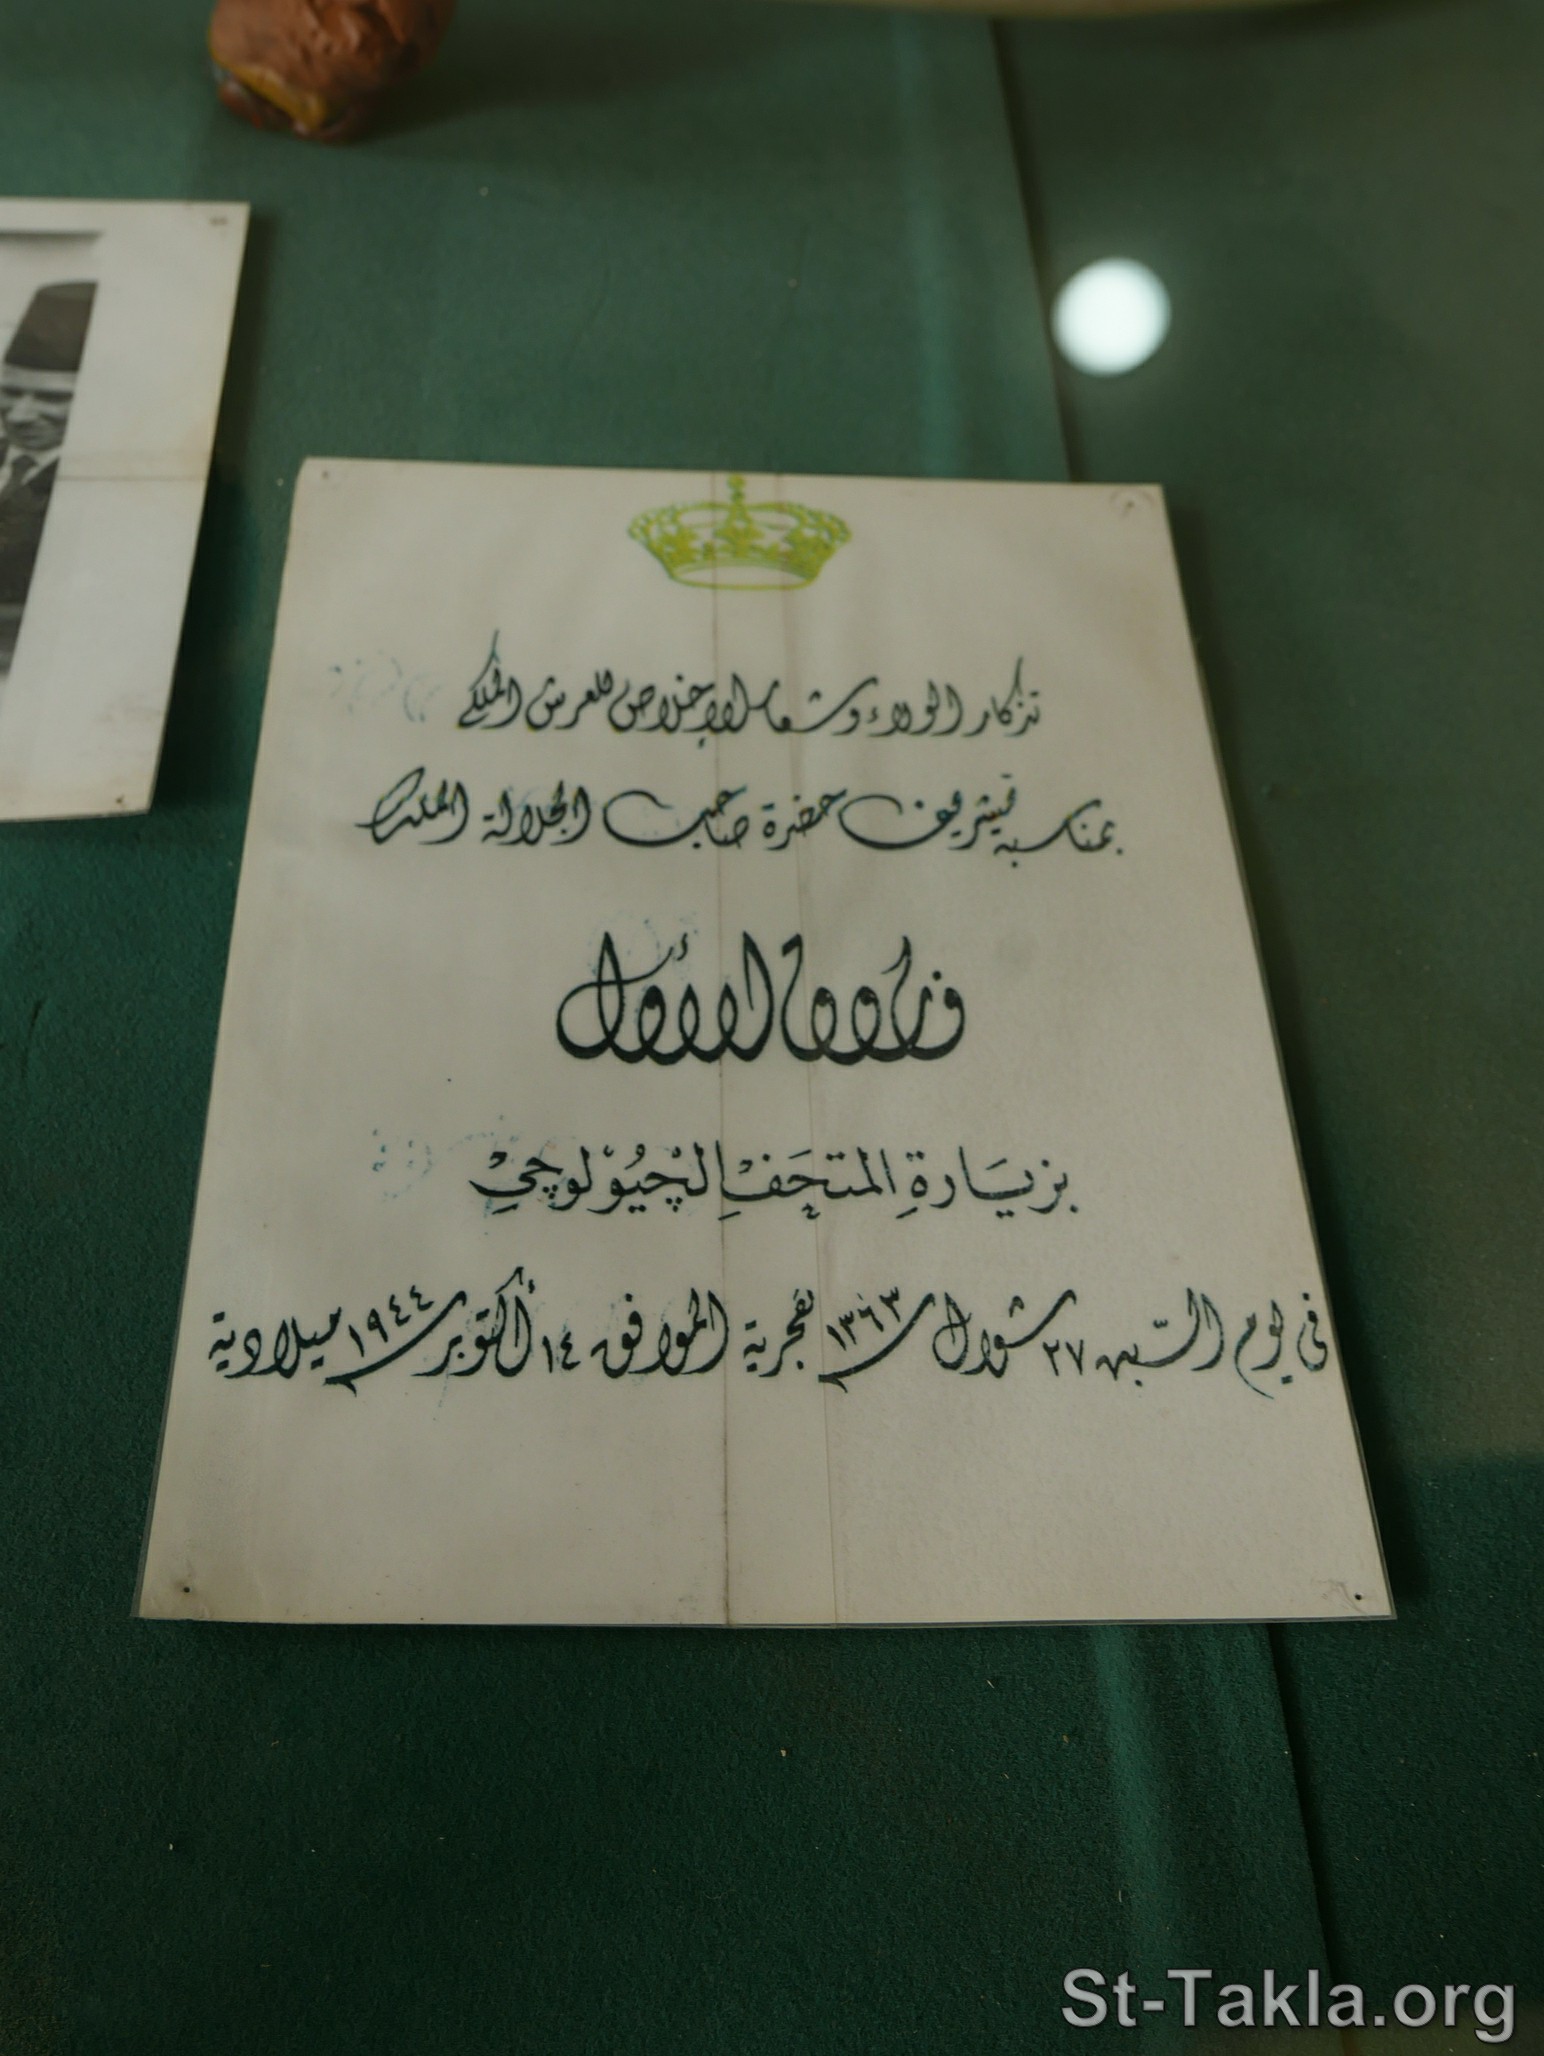 تذكار الولاء وشعار الإخلاص للعرش الملكي
بمناسبة تشريف حضرة صاحب الجلالة الملك
فاروق الأول
بزيَارةِ المتحَفْ الچيُوْلوچيْ
في يوم السّبت ٢٧ شوال سنة ١٣٦٣ هجرية الموافق ١٤ أكتوبر سنة ١٩٤٤ ميلادية
St-Takla.org